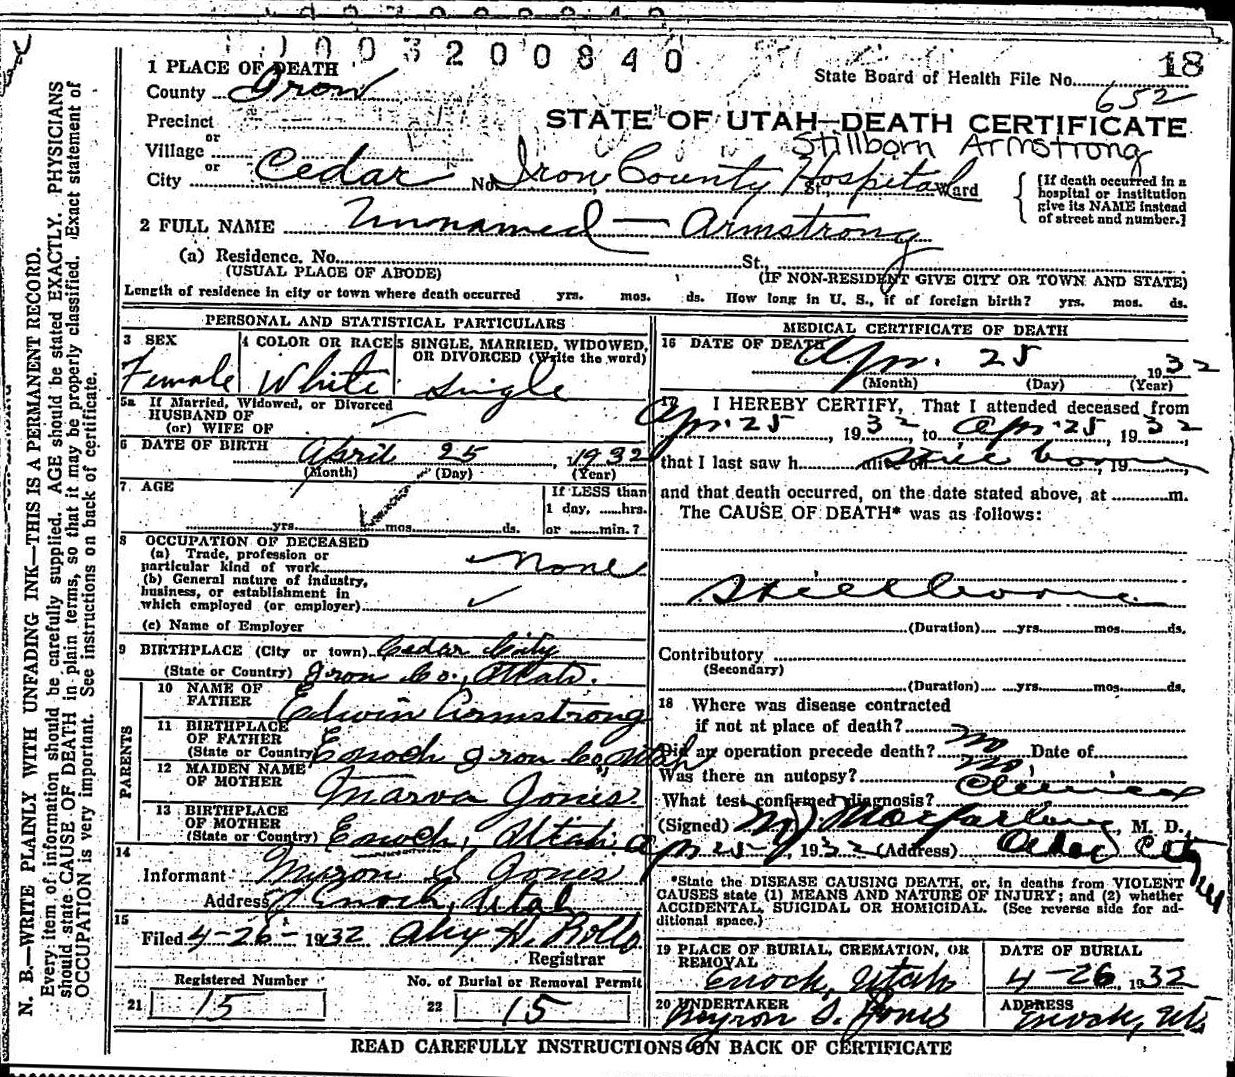 1003200840
18
1 PLACE OF DEATH
State Board of Health File No. 652
County Iron
STATE OF UTAH—DEATH CERTIFICATE
Precinct
or
Stillborn Armstrong
Village
or
City Cedar No. Iron County Hospital St., Ward
[If death occurred in a hospital or institution give its NAME instead of street and number.]
2 FULL NAME Unnamed — Armstrong
(a) Residence. No. St.,
(USUAL PLACE OF ABODE) (IF NON-RESIDENT GIVE CITY OR TOWN AND STATE)
Length of residence in city or town where death occurred yrs. mos. ds. How long in U. S., if of foreign birth? yrs. mos. ds.
PERSONAL AND STATISTICAL PARTICULARS
3 SEX 4 COLOR OR RACE 5 SINGLE, MARRIED, WIDOWED,
OR DIVORCED (Write the word)
Female White Single
5a If Married, Widowed, or Divorced
HUSBAND OF
(or) WIFE OF
6 DATE OF BIRTH April 25, 1932
(Month) (Day) (Year)
7 AGE
If LESS than
1 day, hrs.
yrs. mos. ds. or min.?
8 OCCUPATION OF DECEASED
(a) Trade, profession or
particular kind of work None
(b) General nature of industry,
business, or establishment in
which employed (or employer)
(c) Name of Employer
9 BIRTHPLACE (City or town) Cedar City
(State or Country) Iron Co., Utah.
PARENTS
10 NAME OF
FATHER Edwin Armstrong
11 BIRTHPLACE
OF FATHER
(State or Country) Enoch Iron Co, Utah
12 MAIDEN NAME
OF MOTHER Marva Jones
13 BIRTHPLACE
OF MOTHER
(State or Country) Enoch, Utah
14
Informant Myron S Jones
Address Enoch, Utah
15
Filed 4-26- 1932
Registrar
Registered Number No. of Burial or Removal Permit
21 15 22 15
MEDICAL CERTIFICATE OF DEATH
16 DATE OF DEATH Apr. 25 1932
(Month) (Day) (Year)
17 I HEREBY CERTIFY, That I attended deceased from
Apr. 25, 1932 to Apr. 25, 1932
that I last saw h alive on still borne, 19
and that death occurred, on the date stated above, at m.
The CAUSE OF DEATH* was as follows:
Stillborne
(Duration) yrs. mos. ds.
Contributory
(Secondary)
(Duration) yrs. mos. ds.
18 Where was disease contracted
if not at place of death?
Did an operation precede death? no Date of
Was there an autopsy? no
What test confirmed diagnosis? Clinical
(Signed) M J Macfarlane, M. D.
Apr 25, 1932 (Address) Cedar City Utah
*State the DISEASE CAUSING DEATH, or, in deaths from VIOLENT
CAUSES state (1) MEANS AND NATURE OF INJURY; and (2) whether
ACCIDENTAL, SUICIDAL OR HOMICIDAL. (See reverse side for ad-
ditional space.)
19 PLACE OF BURIAL, CREMATION, OR
REMOVAL
DATE OF BURIAL
Enoch, Utah 4-26, 1932
20 UNDERTAKER ADDRESS
Myron S. Jones Enoch, Utah
READ CAREFULLY INSTRUCTIONS ON BACK OF CERTIFICATE
N. B.—WRITE PLAINLY WITH UNFADING INK—THIS IS A PERMANENT RECORD.
Every item of information should be carefully supplied. AGE should be stated EXACTLY. PHYSICIANS
should state CAUSE OF DEATH in plain terms, so that it may be properly classified. Exact statement of
OCCUPATION is very important. See instructions on back of certificate.